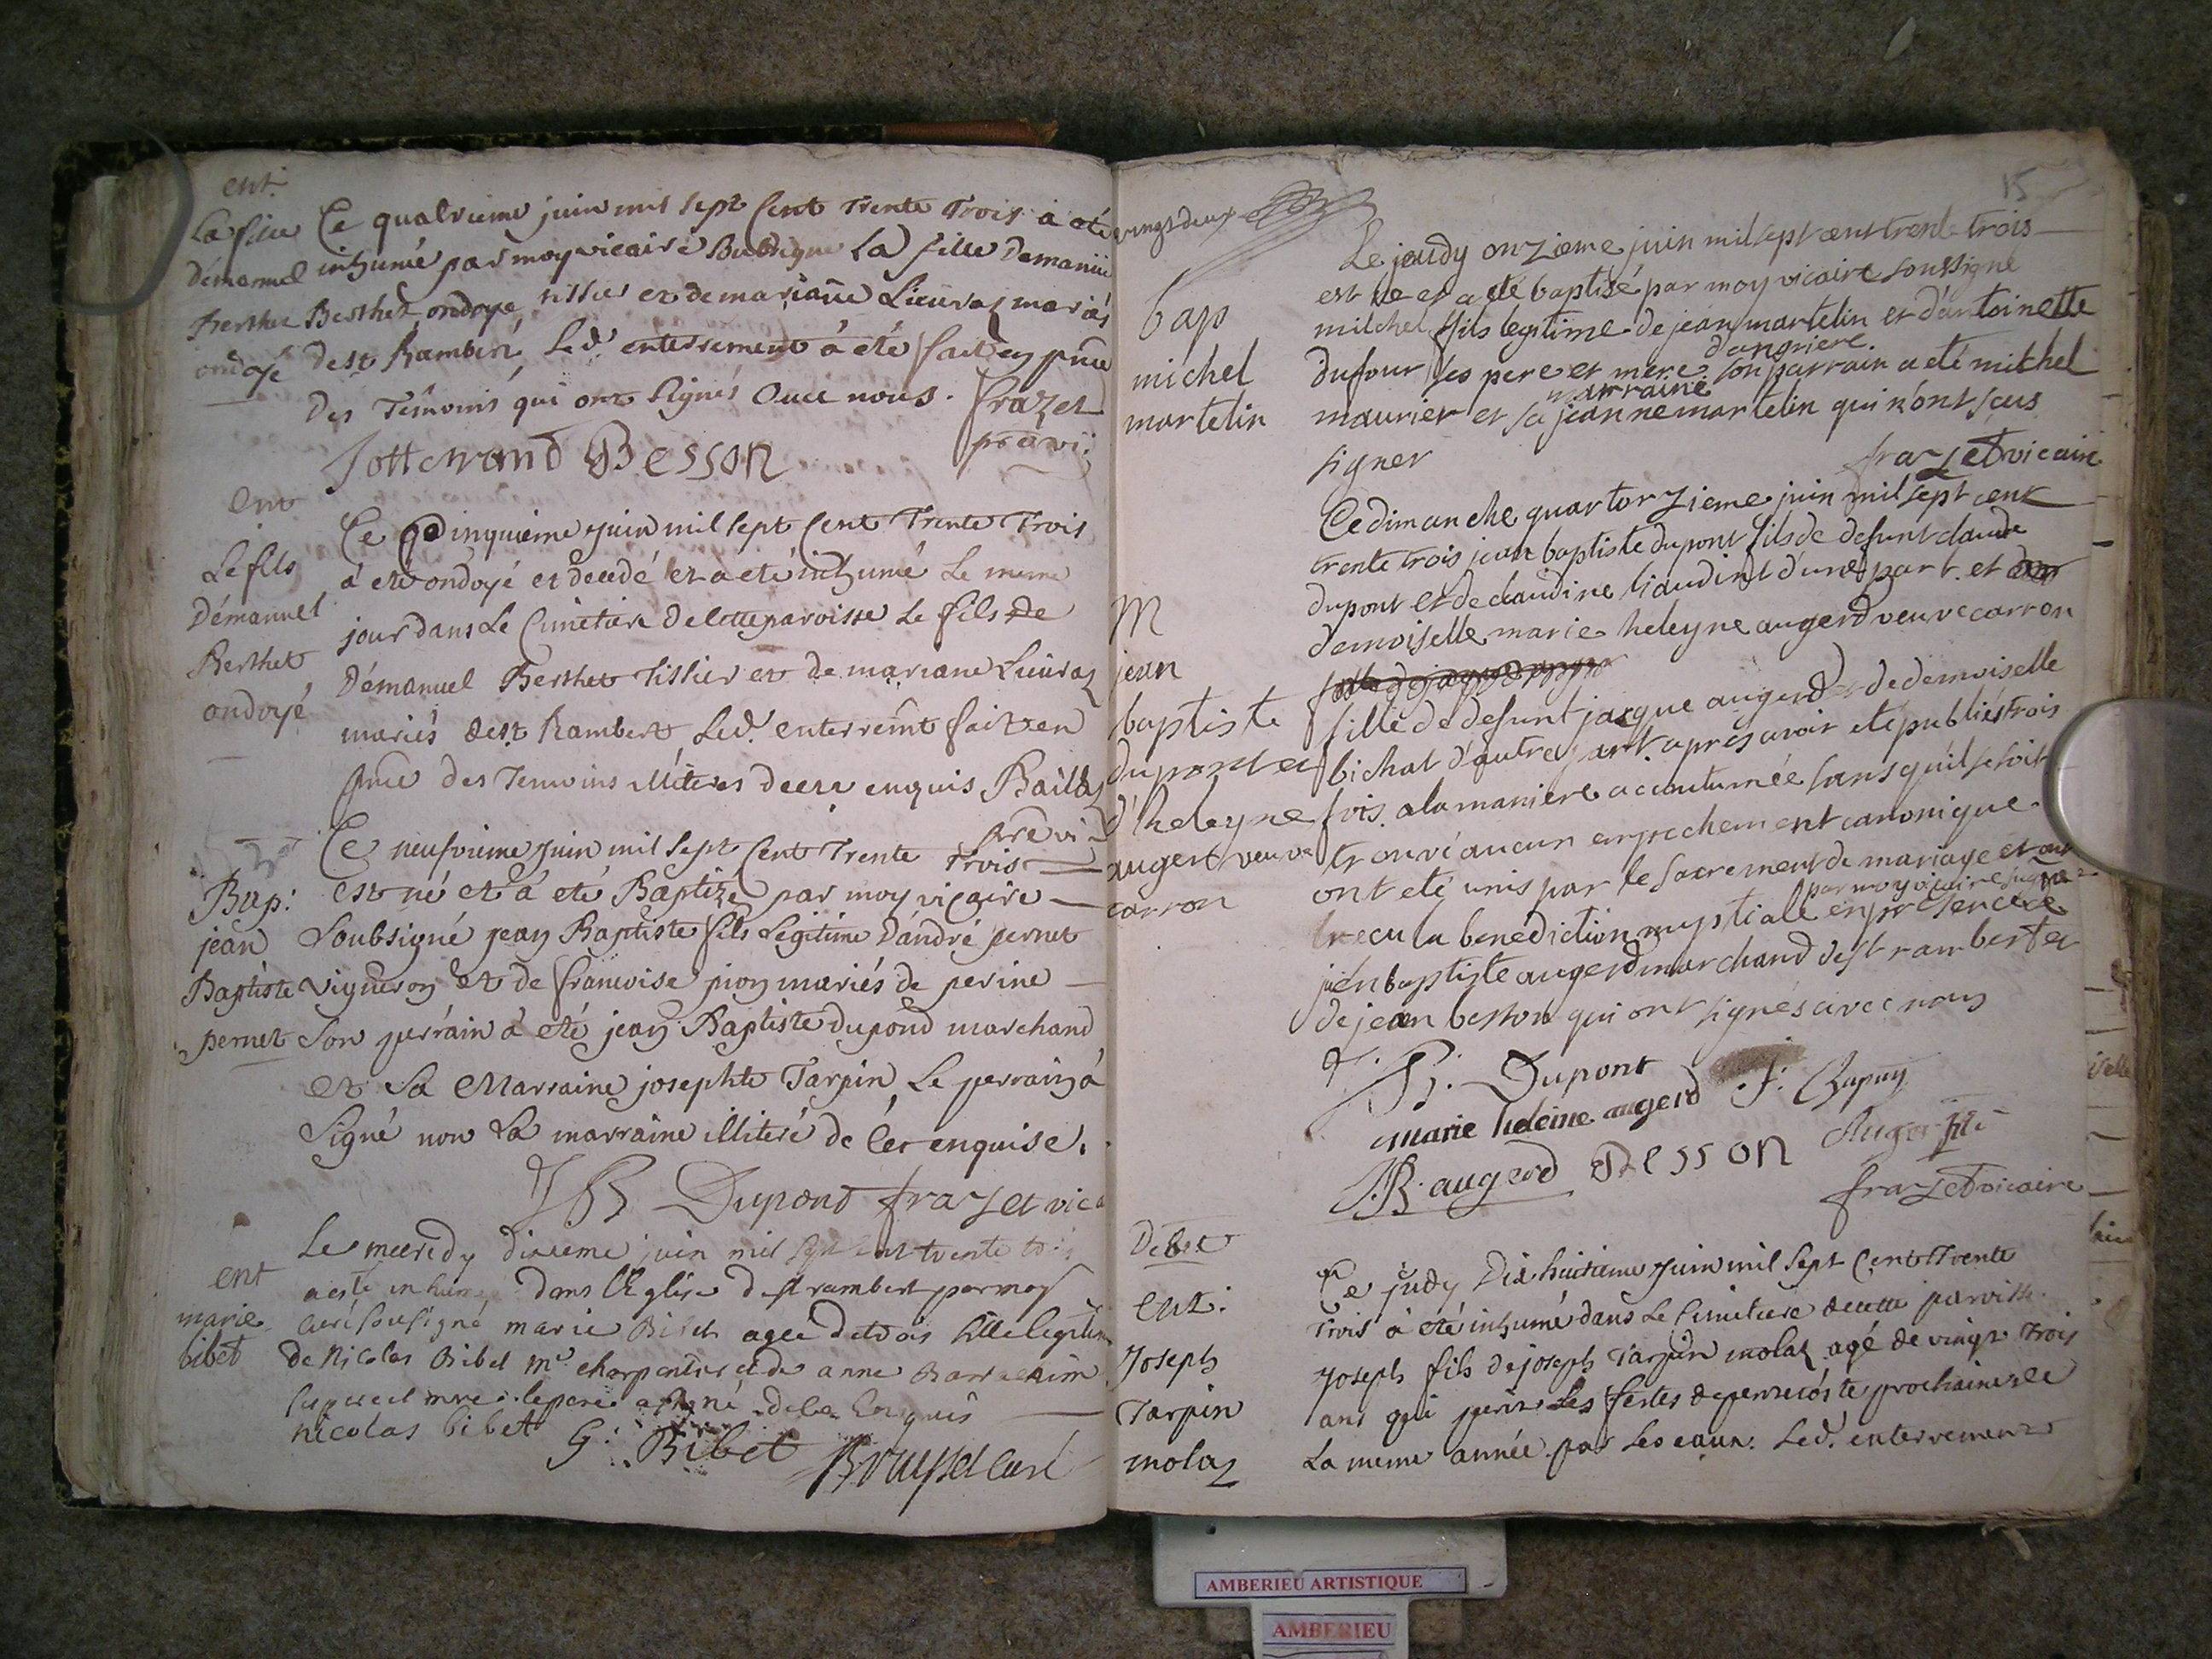 ent.
La fille
démanuel
Berthet
ondoyé
Ce quatrieme juin mil sept Cent Trente Trois a été
inhumé par moy vicaire Soubsigné La fille Demanüel
Berthet ondoyé tissier et de mariane Lieuraz mariés
de st Rambert, Led. enterrement à été fait en pñce
des Témoins qui ont signés avec nous. frazet
pr̃e vi:
Jotterand Besson
ent
Le fils
Démanuel
Berthet
ondoyé
Ce Cinquieme juin mil sept Cent Trente Trois
à été ondoyé et decedé et a eté inhumé Le meme
jour dans Le Cimetiere de cette paroisse Le fils de
Démanuel Berthet tissier et de mariane Lieuraz
mariés de st Rambert, Led. enterrem̃t fait en
pñce des Temoins illiteres de ce enquis
pr̃e vi
Bap:
jean
Baptiste
pernet
Ce neufvieme juin mil sept Cent Trente Trois
est né et à été Baptizé par moy vicaire
Soubsigné jean Baptiste fils Legitime D'andré pernet
vigneron et de francoise pion mariés de perine
Son perrain à eté jean Baptiste dupond marchand
et Sa Marraine josephte Tarpin, Le perrain à
Signé non La marraine illiteré de ce enquise.
JB Dupond frazet vic
ent
marie
bibet
Le mecredy dixieme juin mil sept cent trente trois
a esté inhumée dans l'Eglise de st rambert par moy
curé sousigné marie Bibet agée de trois fille legitime
de Nicolas Bibet me charpentier et de anne
ses pere et mere le pere a signé de ce enquis
nicolas bibet G: Bibet curé
15
vingt deux
bap
michel
martelin
Le jeudy onzieme juin mil sept cent trente trois
est né et a eté baptisé par moy vicaire soussigné
mitchel fils legitime de jean martelin et d'antoinette
dufour ses pere et mere d'angriere. son parrain a eté mitchel
maurier et sa marraine jeanne martelin qui n'ont sçus
signer
frazet vicaire
M
jean
baptiste
dupont et
d'heleyne
augerd veuve
carron
Ce dimanche quartorzieme juin mil sept cent
trente trois jean baptiste dupont fils de defunt claude
dupont et de claudine liaudint d'une part. et
demoiselle marie heleyne augerd veuve carron
fille de defunt jacque augerd et de demoiselle
bichat d'autre part. apres avoir eté publiés trois
fois. a la maniere accoutumée sans qu'il se soit
trouvé aucun empechement canonique
ont eté unis par le sacrement de mariage et ont
recu la benediction nuptiale par moy vicaire sugné en presence de
jean baptiste augerd marchand de st rambert et
de jean besson qui ont signés avec nous
J. B. Dupont J: Dupuy
marie heleine augerd
J.B. augerd Besson Auger fils
frazet vicaire
Decet
ent.
Joseph
Tarpin
molaz
Ce judy Dix huitieme juin mil sept Cent Trente
Trois à été inhumé dans Le Cimetiere de cette paroisse
Joseph fils de joseph Tarpin molaz agé de vingt Trois
ans qui perit Les festes de pentecoste prochaines de
La meme année par Les eaux. Led. enterrement
AMBERIEU ARTISTIQUE
AMBERIEU